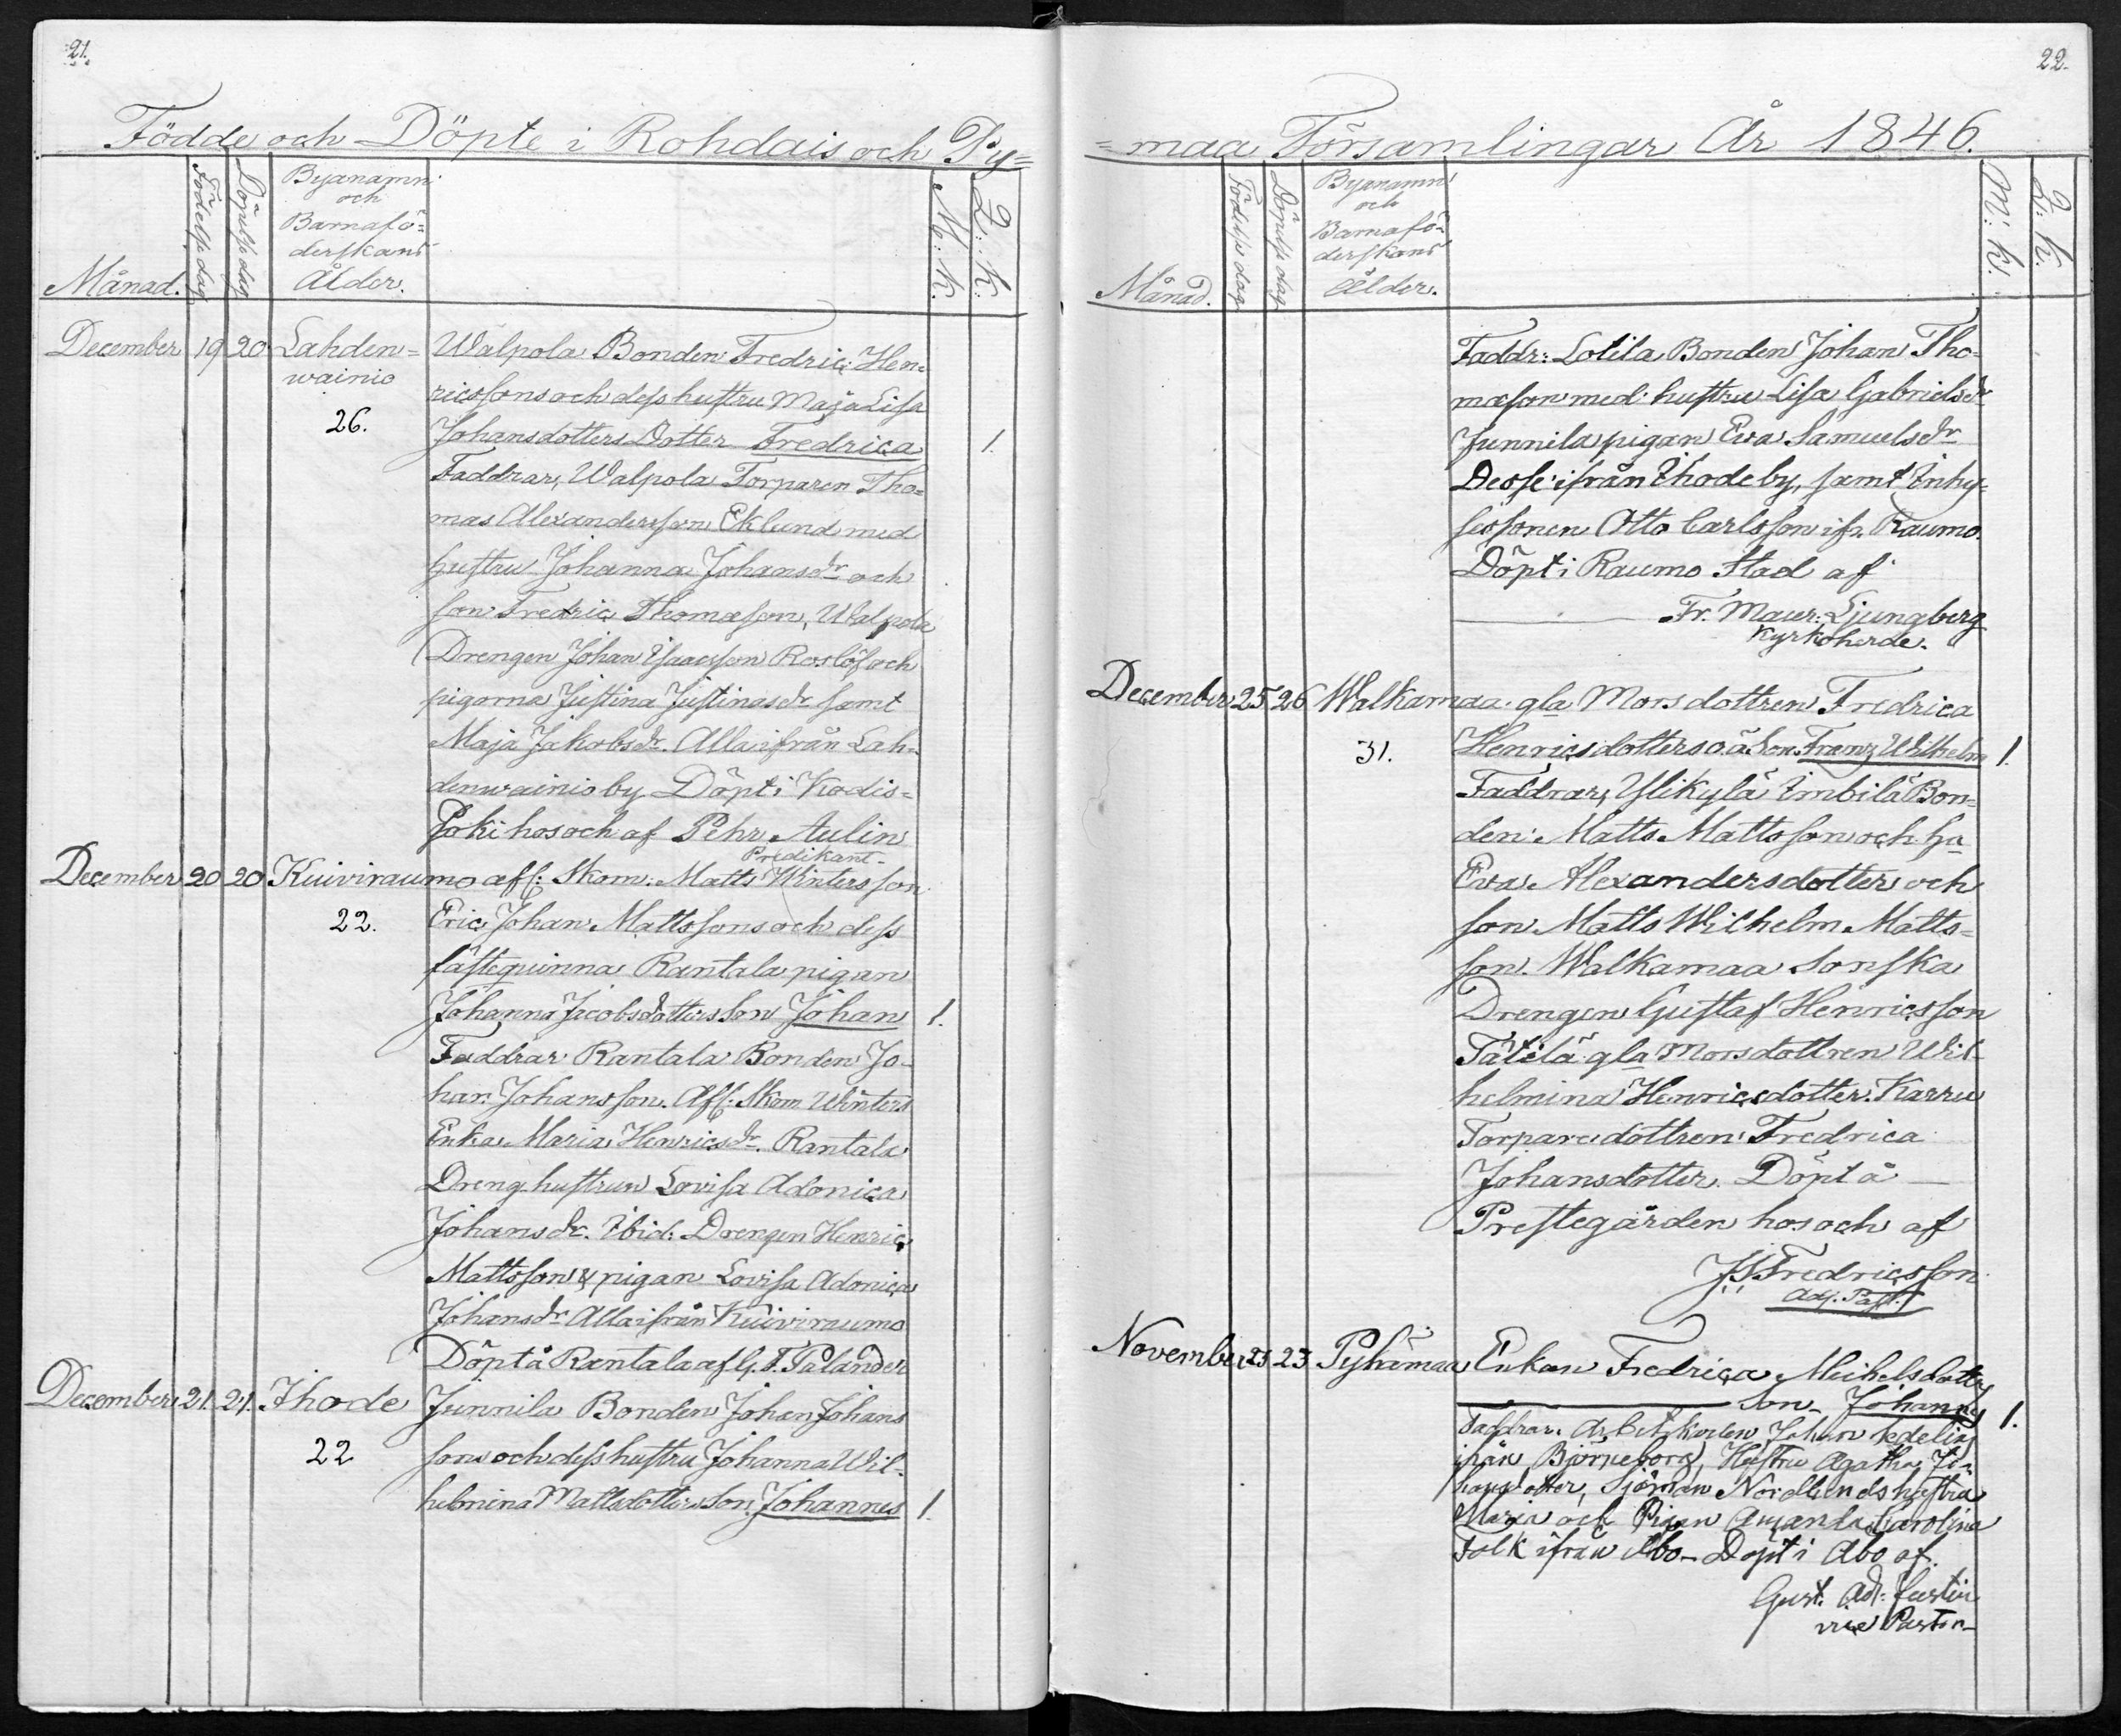 21.
Födde och Döpte i Rohdais och Py=
Månad.
Födelse dag
Döpelse dag
Byanamn
och
Barnafö=
derskans
Ålder.
M: K.
Q: K.
December 19 20 Lahden= Walpola Bonden Fredric Hen=
wainio ricssons och dess hustru Maja Lisa
26. Johansdotters Dotter Fredrica 1.
Faddrar, Walpola Torparen Tho=
mas Alexandersson Eklund med
hustru Johanna Johansdr och
son Fredric Thomasson, Walpola
Drengen Johan Isaacsson Roslöf och
pigorna Justina Justinasdr samt
Maja Jakobsdr. Alla ifrån Lah=
denwainio by Döpt i Kodis=
joki hos och af Pehr Aulin
Predikant.
December 20 20 Kuiviraumo aff: Skom: Matts Winters son
22. Eric Johan Mattssons och dess
fästequinna Rantala pigan
Johanna Jacobsdotters Son Johan 1.
Faddrar Rantala Bonden Jo-
han Johansson. Aff: Skom Winters
Enka Maria Henricsdr. Rantala
Dreng hustrun Lovisa Adonica
Johansdr. Ibid: Drengen Henric
Mattsson & pigan Lovisa Adonica
Johansdr Alla ifrån Kuiviraumo
Döpt å Rantala af G. F. Palander
December 21. 21. Ihode Junnila Bonden Johan Johans
22 sons och dess hustru Johanna Wil-
helmina Mattsdotters Son Johannes 1.
22.
=maa Församlingar År 1846.
Månad.
Födelse dag
Döpelse dag
Byanamn
och
Barnafö=
derskans
Ålder.
M: K.
Q: K.
Faddr: Lolila Bonden Johan Tho-
masson med hustru Lisa Gabrielsdr
Junnila pigan Eva Samuelsdr
Desse ifrån Ihode by, samt Inhy=
sessonen Otto Carlsson ifr. Raumo.
Döpt i Raumo Stad af
Fr. Maur: Ljungberg
Kyrkoherde.
December 25 26 Walkamaa gla Morsdottren Fredrica
31. Henricsdotters o.ä. Son Franz Wilhelm 1.
Faddrar, Ylikylä Imbilä Bon=
den Matts Mattsson och Hu
Eva Alexandersdotter och
son Matts Wilhelm Matts=
son. Walkamaa Sonska
Drengen Gustaf Henricsson
Tätilä gla Morsdottren Wil-
helmina Henricsdotter. Karru
Torparedottren Fredrica
Johansdotter. Döpt å
Prestegården hos och af
J. J. Fredricsson
Adj. Past.
November 23 23 Pyhämaa Enkan Fredrica Michelsdotters
Son Johannes 1.
Faddrar. Arbetskarlen Johan Sedelius
ifrån Björneborg, Hustru Agatha Jo=
hansdotter, Sjöman Nordlunds hustru
Maria och Pigan Amanda Carolina
Falk ifrån Åbo - Döpt i Åbo af
Gust. Ad:
vice Pastor